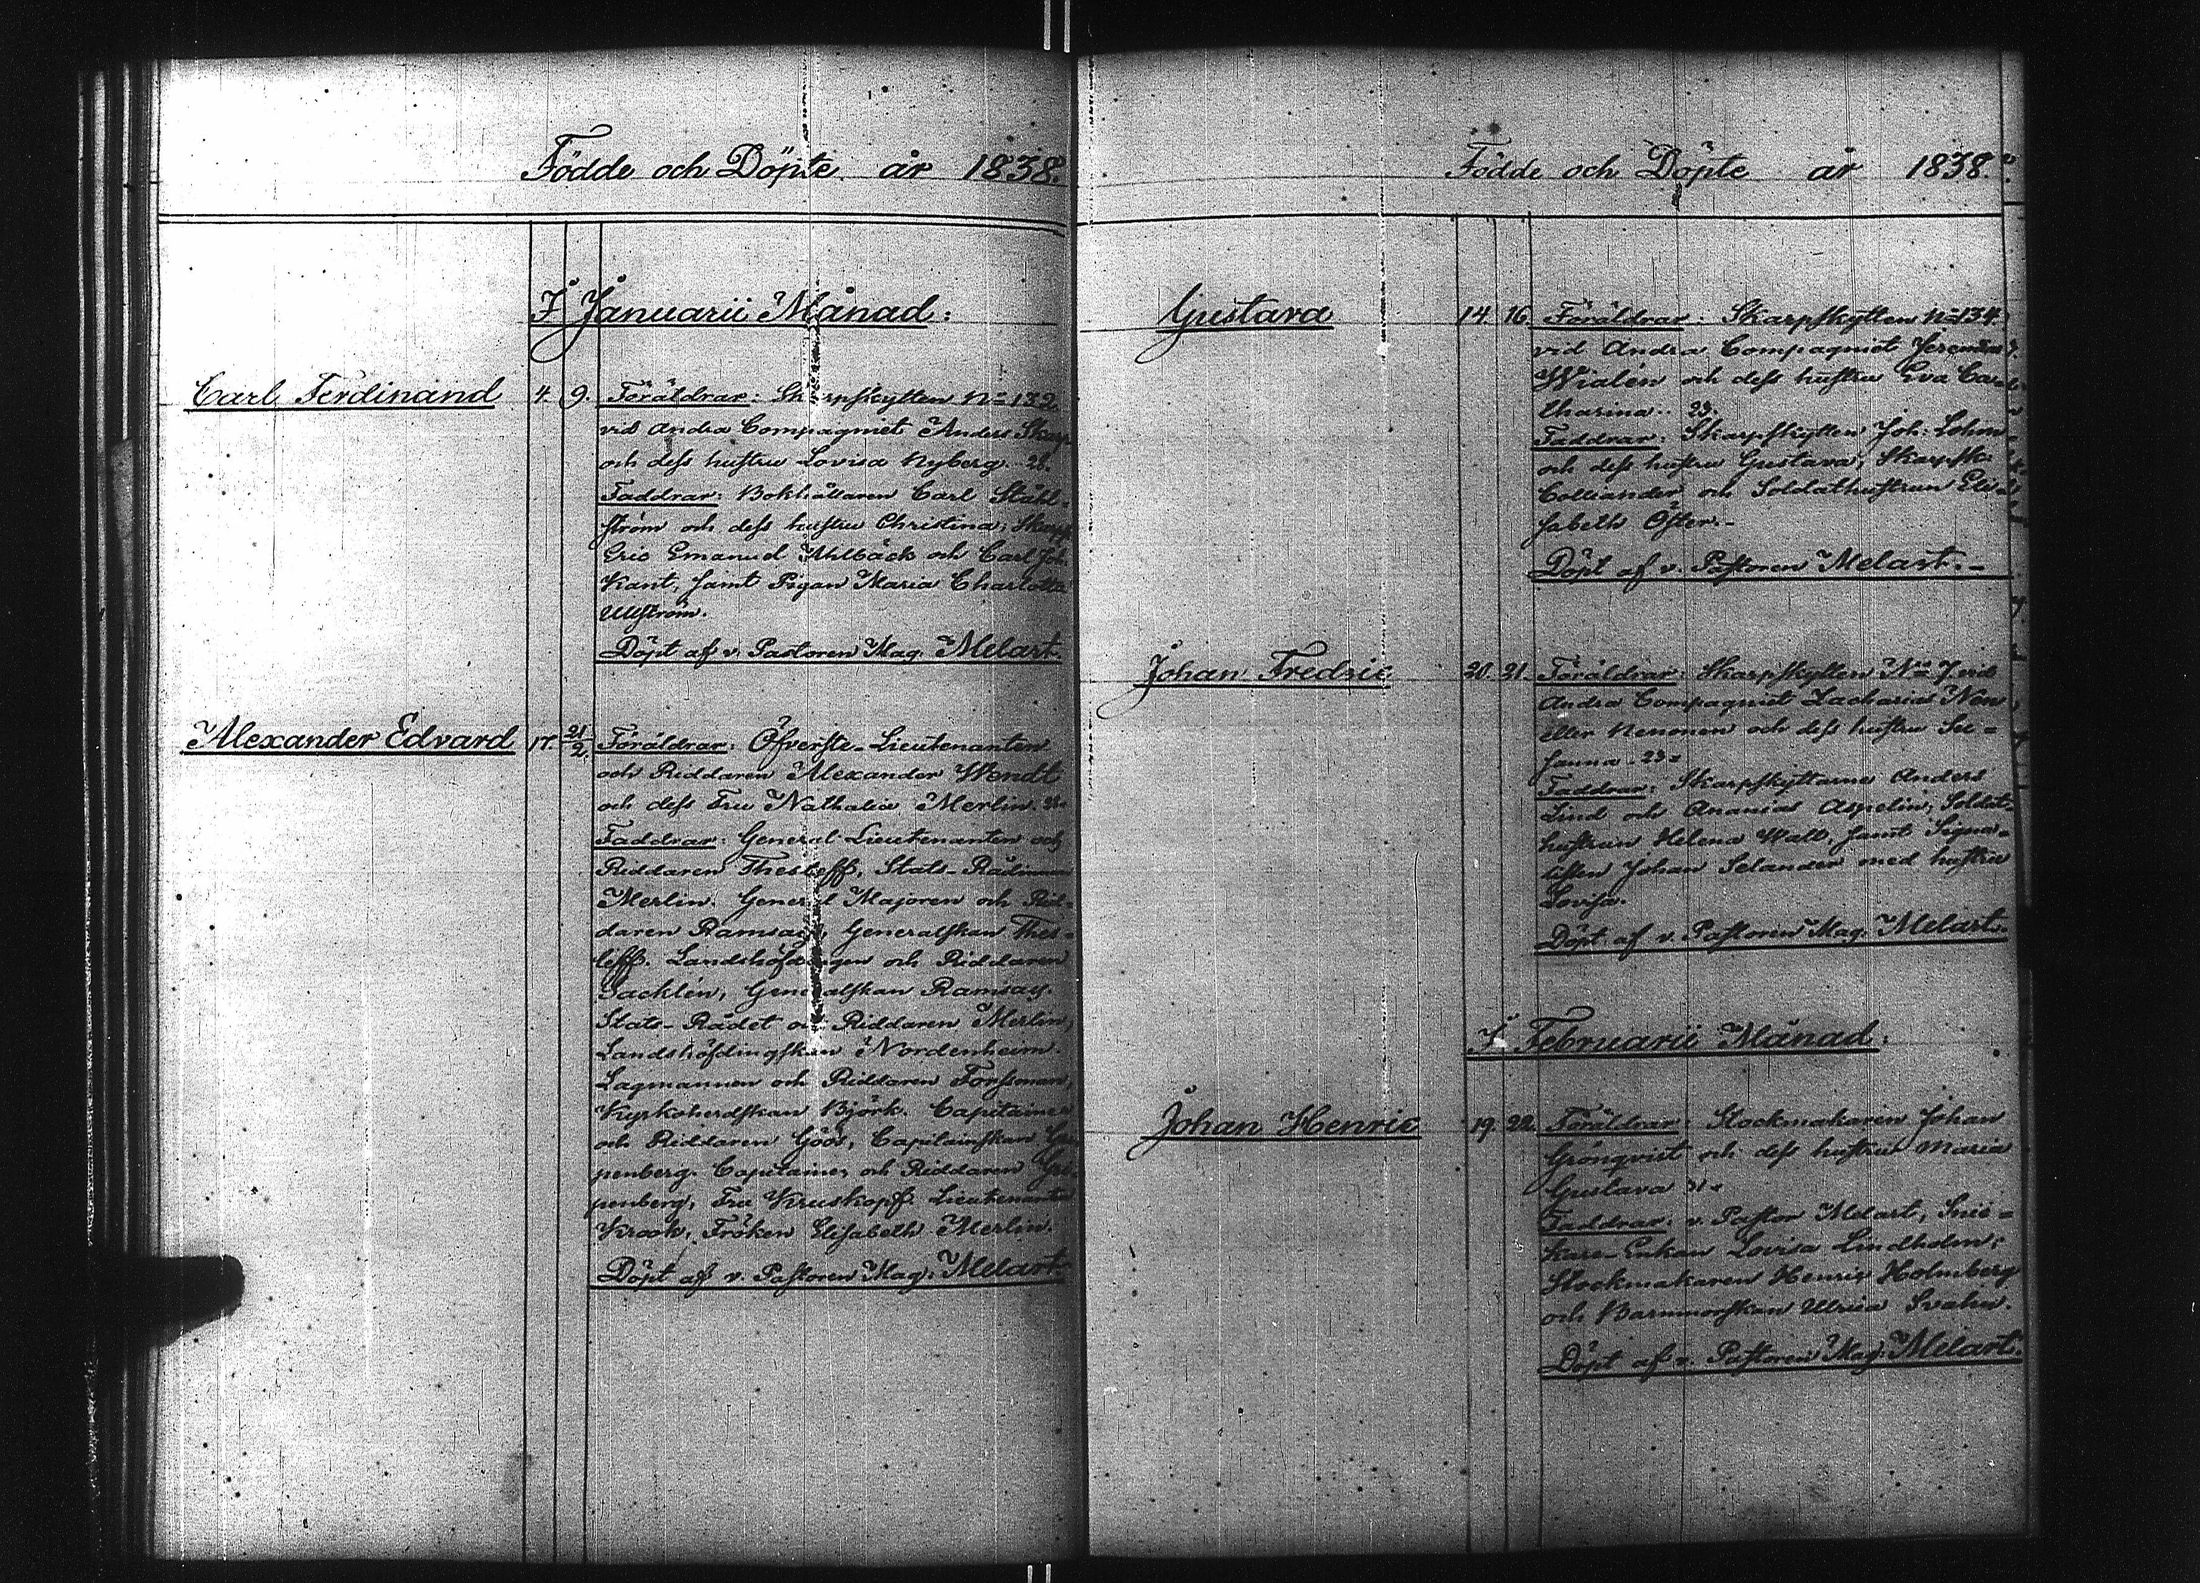 Födde och Döpte år 1838.
I Januarii Månad:
Carl Ferdinand 4. 9. Föräldrar: Skarpskytten No 132
vid Andra Compagniet Anders Skarp
och dess hustru Lovisa Nyberg. 26.
Faddrar: Bokhållaren Carl Ståhl-
ström och dess hustru Christina; Skarpsk.
Eric Emanuel Ahlbäck och Carl Joh.
Kant, samt Pigan Maria Charlotta
Ullström.
Döpt af v. Pastoren Mag. Melart.
Alexander Edvard 17. 21/2. Föräldrar: Öfverste-Lieutenanten
och Riddaren Alexander Wendt
och dess Fru Nathalia Merlin.
Faddrar: General-Lieutenanten och
Riddaren Thesleff, Stats-Rådinnan
Merlin. General Majoren och Rid-
daren Ramsay, Generalskan Thes-
leff. Landshöfdingen och Riddaren
Jacklén, Generalskan Ramsay.
Stats-Rådet och Riddaren Merlin,
Landshöfdingskan Nordenheim.
Lagmannen och Riddaren Forssman,
Kyrkoherdskan Björk. Capitainen
och Riddaren Göös, Capitainskan Gri-
penberg. Capitainen och Riddaren Gri-
penberg, Fru Kruskopf. Lieutenanten
Krook, Fröken Elisabeth Merlin.
Döpt af v. Pastoren Mag. Melart.
Födde och Döpte år 1838.
Gustava 14. 16. Föräldrar: Skarpskytten No 134.
vid Andra Compagniet
Wialén och dess hustru Eva Ca-
tharina.. 23.
Faddrar: Skarpskytten Joh: Lohm
och dess hustru Gustava, Skarpsk:
Colliander och Soldathustrun Eli-
sabeth Öster.-
Döpt af v. Pastoren Melart.-
Johan Fredric 20. 21. Föräldrar: Skarpskytten No 7 vid
Andra Compagniet Zacharias Nen
eller Nenonen och dess hustru Su-
sanna. 23.
Faddrar: Skarpskyttarne Anders
Lind och Ananias Aspelin, Soldat-
hustrun Helena Wall, samt Signa-
listen Johan Selander med hustru
Lovisa.
Döpt af v. Pastoren Mag. Melart.
I Februarii Månad:
Johan Henric 19. 22. Föräldrar: Stockmakaren Johan
Grönqvist och dess hustru Maria
Gustava
Faddrar: v. Pastor Melart, Snic-
kare-Enkan Lovisa Lindholm;
Stockmakaren Henric Holmberg
och Barnmorskan Ulrica Svahn.
Döpt af v. Pastoren Mag. Melart.